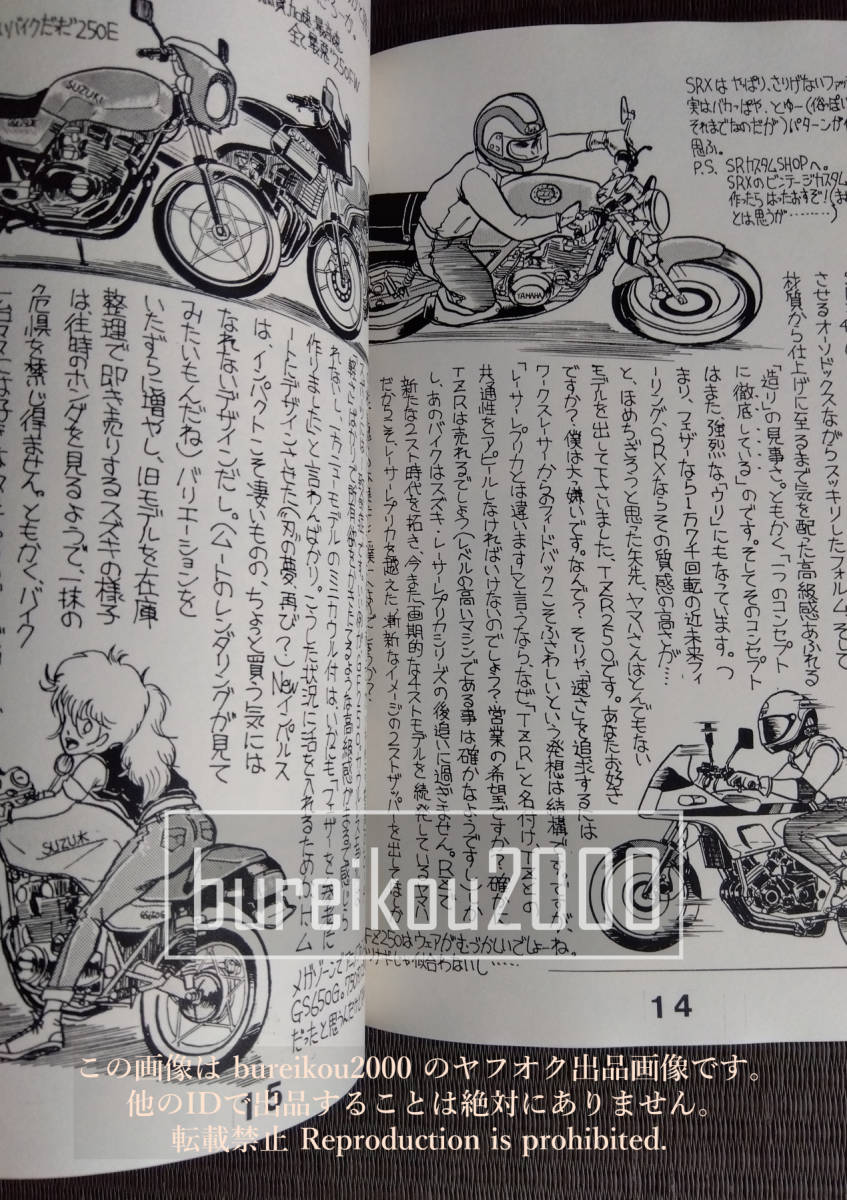 SRXは やっぱり、さりげないファッ
実はバカっぱや、とゆー(俗っぽい
それまでなのだが)パターンが
思ふ。
P.S. SRカスタムSHOPへ。
SRXのビンテージカスタム
作ったらはったおすぞ!(ま
とは思うが………)
YAMAHA
させるオーソドックスながらスッキリしたフォルム。そして
材質から仕上げに至るまで気を配った高級感あふれる
「造り」の見事さ。ともかく「一つのコンセプト
に徹底している」のです。そしてそのコンセプト
はまた、強烈な「ウリ」にもなっています。つ
まり、フェザーなら1万7千回転の近未来フィ
ーリング、SRXならその質感の高さが…
と、ほめちぎろうと思った矢先、ヤマハさんはとんでもない
モデルを出して下さいました、TZR250です。あなたお好き
ですか?僕は大っ嫌いです。なんで?そりゃ「速さ」を追求するには
ワークスレーサーからのフィードバックこそふさわしいという発想は結構です。ですがね。
「レーサーレプリカとは違います」と言うなら、なぜ「TZR」と名付けTZとの
共通性をアピールしなければいけないのでしょう?営業の希望ですか?確かに
TZRは売れるでしょう(レベルの高いマシンである事は確かなようですし)
し、あのバイクはスズキ・レーサーレプリカシリーズの後追いに過ぎません。RZで
新たな2スト時代を拓き、今また画期的な4ストモデルを続発しているヤマハ
だからこそ、レーサーレプリカを越えた、斬新なイメージの2ストザッパーを出してほしか
FZ250はウェアがむづかしいでしょーね。
似合わないし……
14
バイクだネ!250E
全て悪魔 250FW
SUZUKI
SUZUKI
れないし、「カンナーモデルのミニカウル付」は、いかにも「フェザーを参考に
作りました」と言わんばかり。こうした状況に活を入れるための
ートにデザインさせた(刃の夢、再び?)Newインパルス
は、インパクトこそ凄いものの、ちょっと買う気には
なれないデザインだし。(ムートのレンダリングが見て
みたいもんだね)バリエーションを
いたずらに増やし、旧モデルを在庫
整理で叩き売りするスズキの様子
は、往時のホンダを見るようで、一抹の
危惧を禁じ得ません。ともかく、バイク
SUZUKI
メガゾーンで
GS650G。750
だったと思うんだ
15
bureikou2000
この画像は bureikou2000 のヤフオク出品画像です。
他のIDで出品することは絶対にありません。
転載禁止 Reproduction is prohibited.